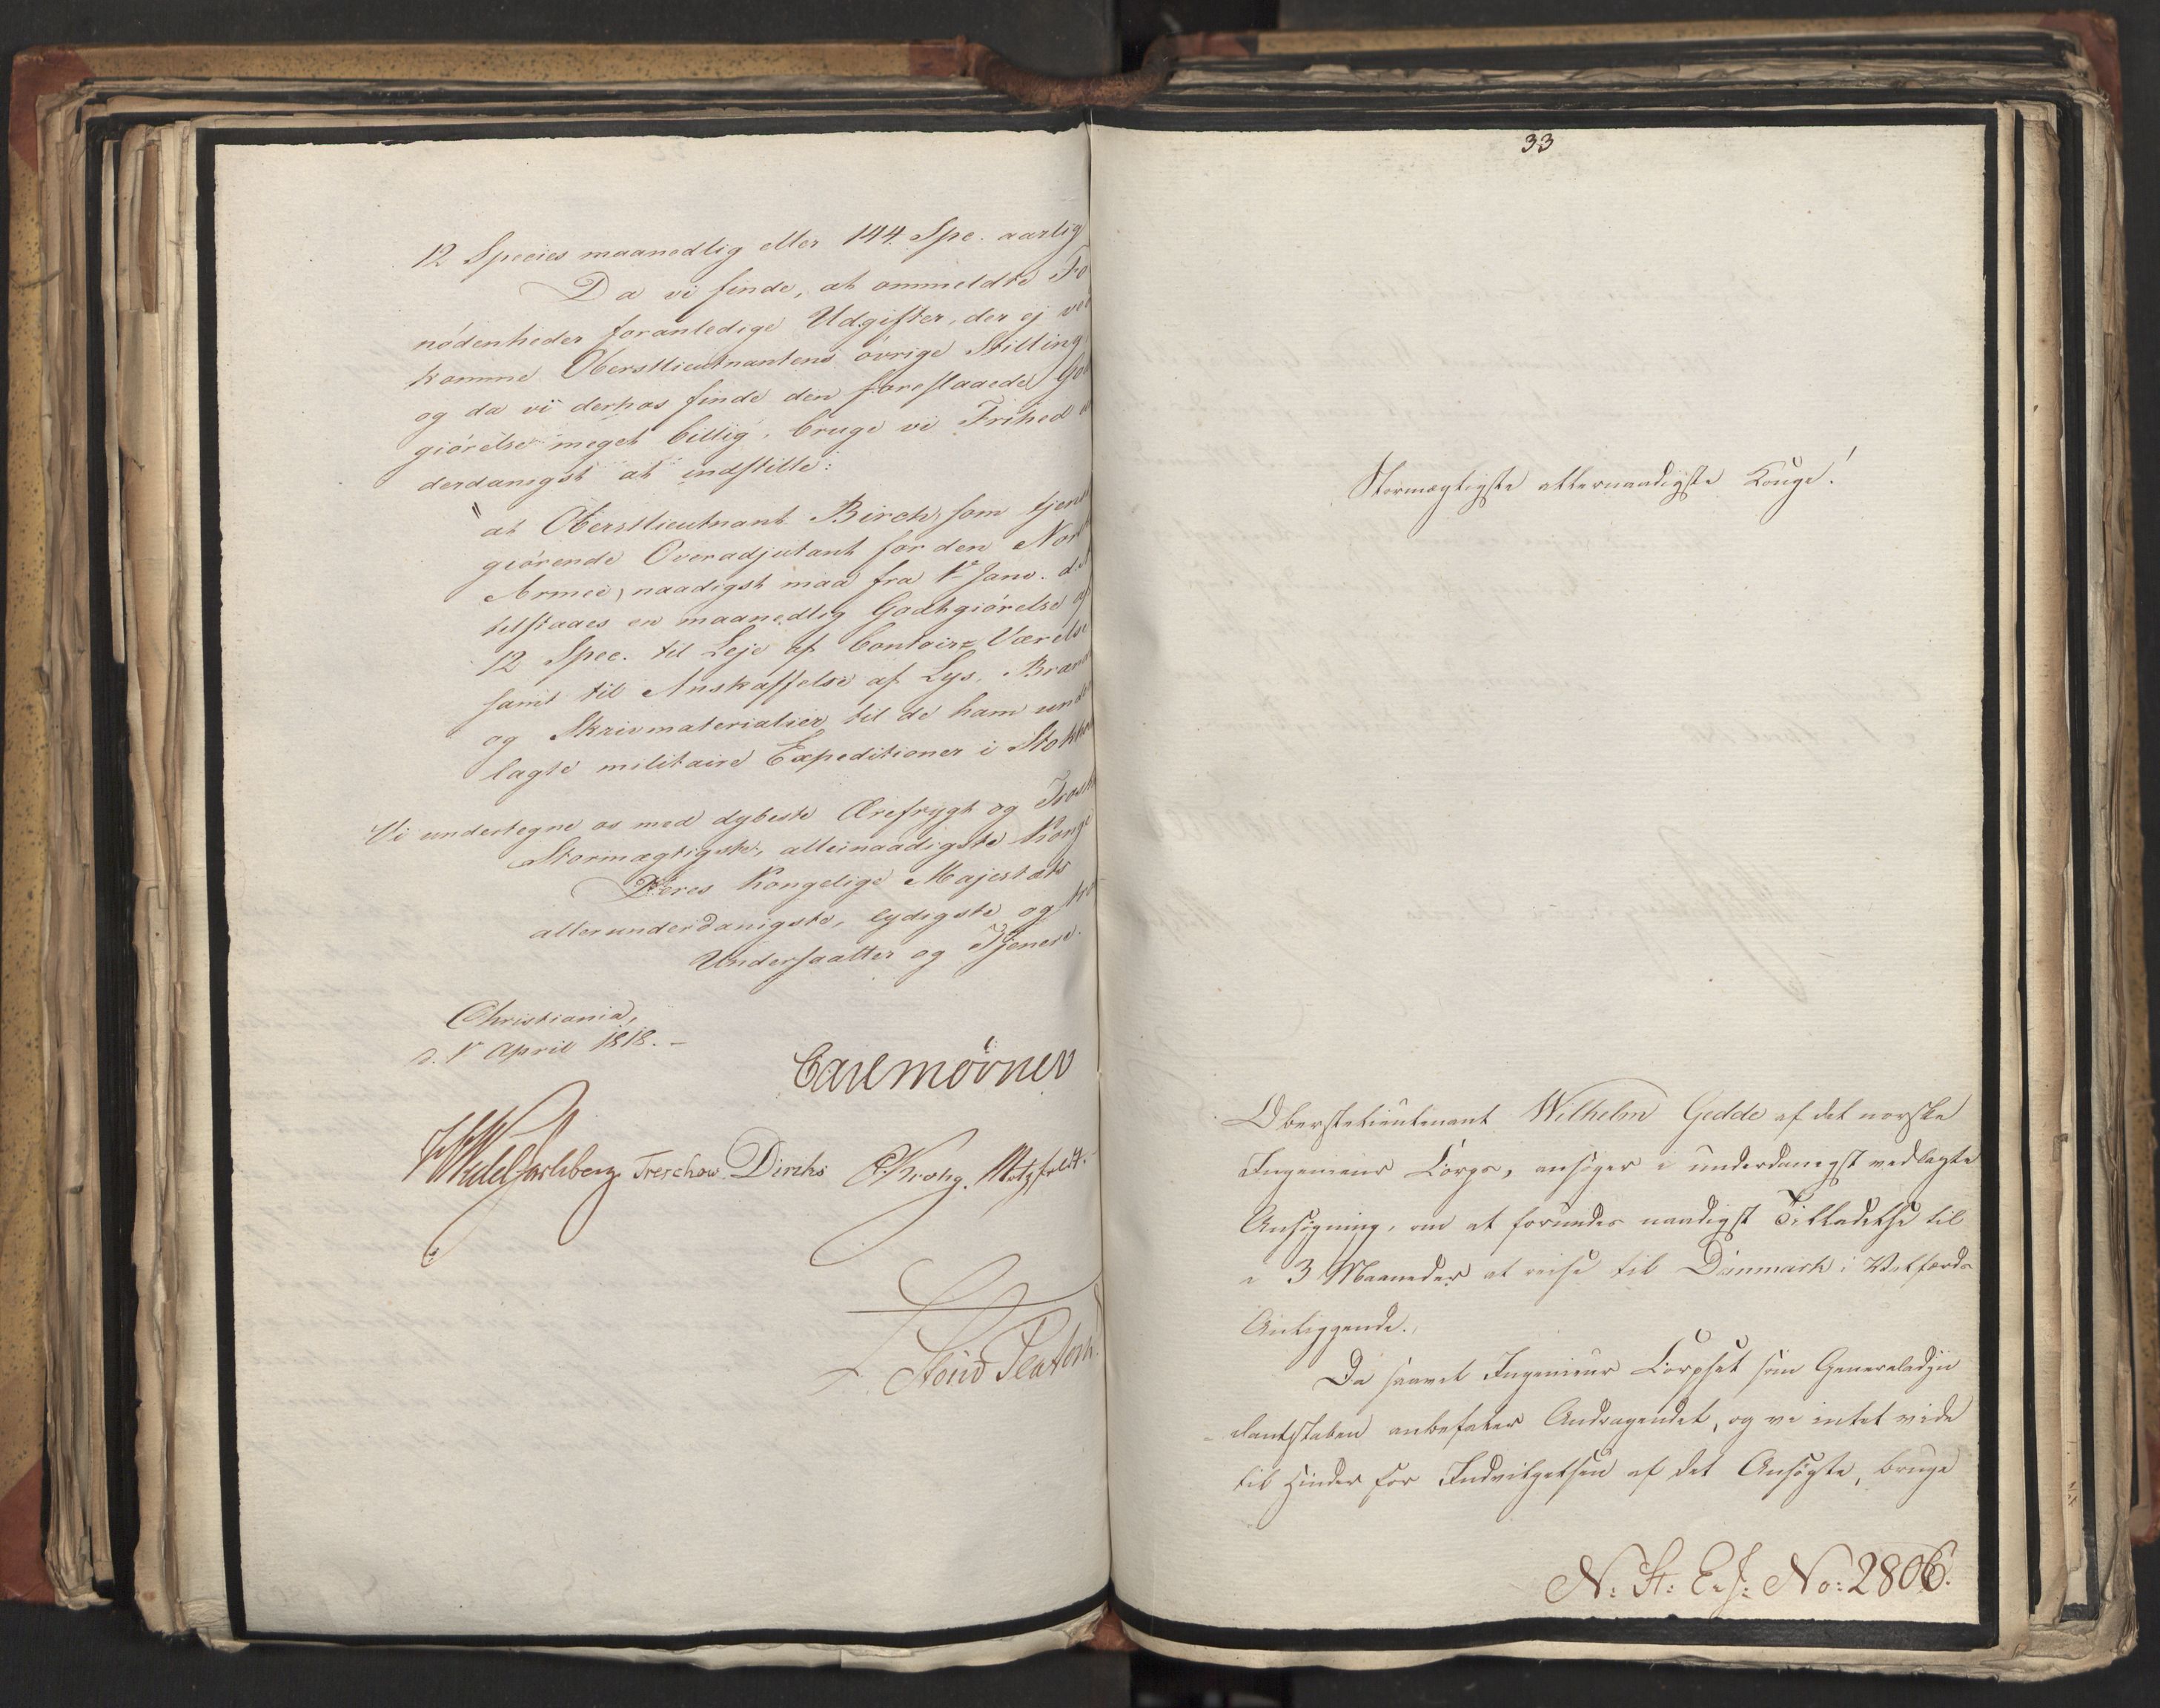 12 Species maanedlig eller 144 Spe. aarlig
Da vi finde, at ommeldte Fo
nødenheder foranledige Udgifter, der ej ved
komme Oberstlieutnantens øvrige Stilling
og da vi derhos finde den foreslaaede God
giørelse meget billig, bruge vi Frihed
derdanigst at indstille:
"at Oberstlieutnant Birch, som tjenst
giørende Overadjutant for den Nor
Armee, naadigst maa fra 1e Janv. d.A
tilstaaes en maanedlig Godtgiørelse af
12 Spec. til Leje af Contoir-Værelse
samt til Anskaffelse af Lys, Bræn
og Skrivmaterialier til de ham under
lagte militaire Expeditioner i Stokho
Vi undertegne os med dybeste Ærefrygt og Trosk
Stormægtigste, allernaadigste Konge
Deres Kongelige Majestæts
allerunderdanigste, lydigste og tro
Undersaatter og Tjenere.
Christiania,
d. 1e April 1818.
Carl Mörner
Wedel Jarlsberg Treschow Diriks C. Krohg. Motzfeldt.
33
Stormægtigste allernaadigste Konge!
Oberstelieutenant Wilhelm Gedde af det norske
Ingenieur Corps, ansøger i underdanigst vedlagte
Ansøgning, om at forundes naadigst Tilladelse til
i 3 Maaneder at reise til Danmark i Velfærds
Anliggende.
Da saavel Ingenieur Corpset som Generaladju
-dantstaben anbefaler Andragendet, og vi intet vide
til Hinder for Indvilgelsen af det Ansøgte, bruge
N: St: E. J: No: 2806.